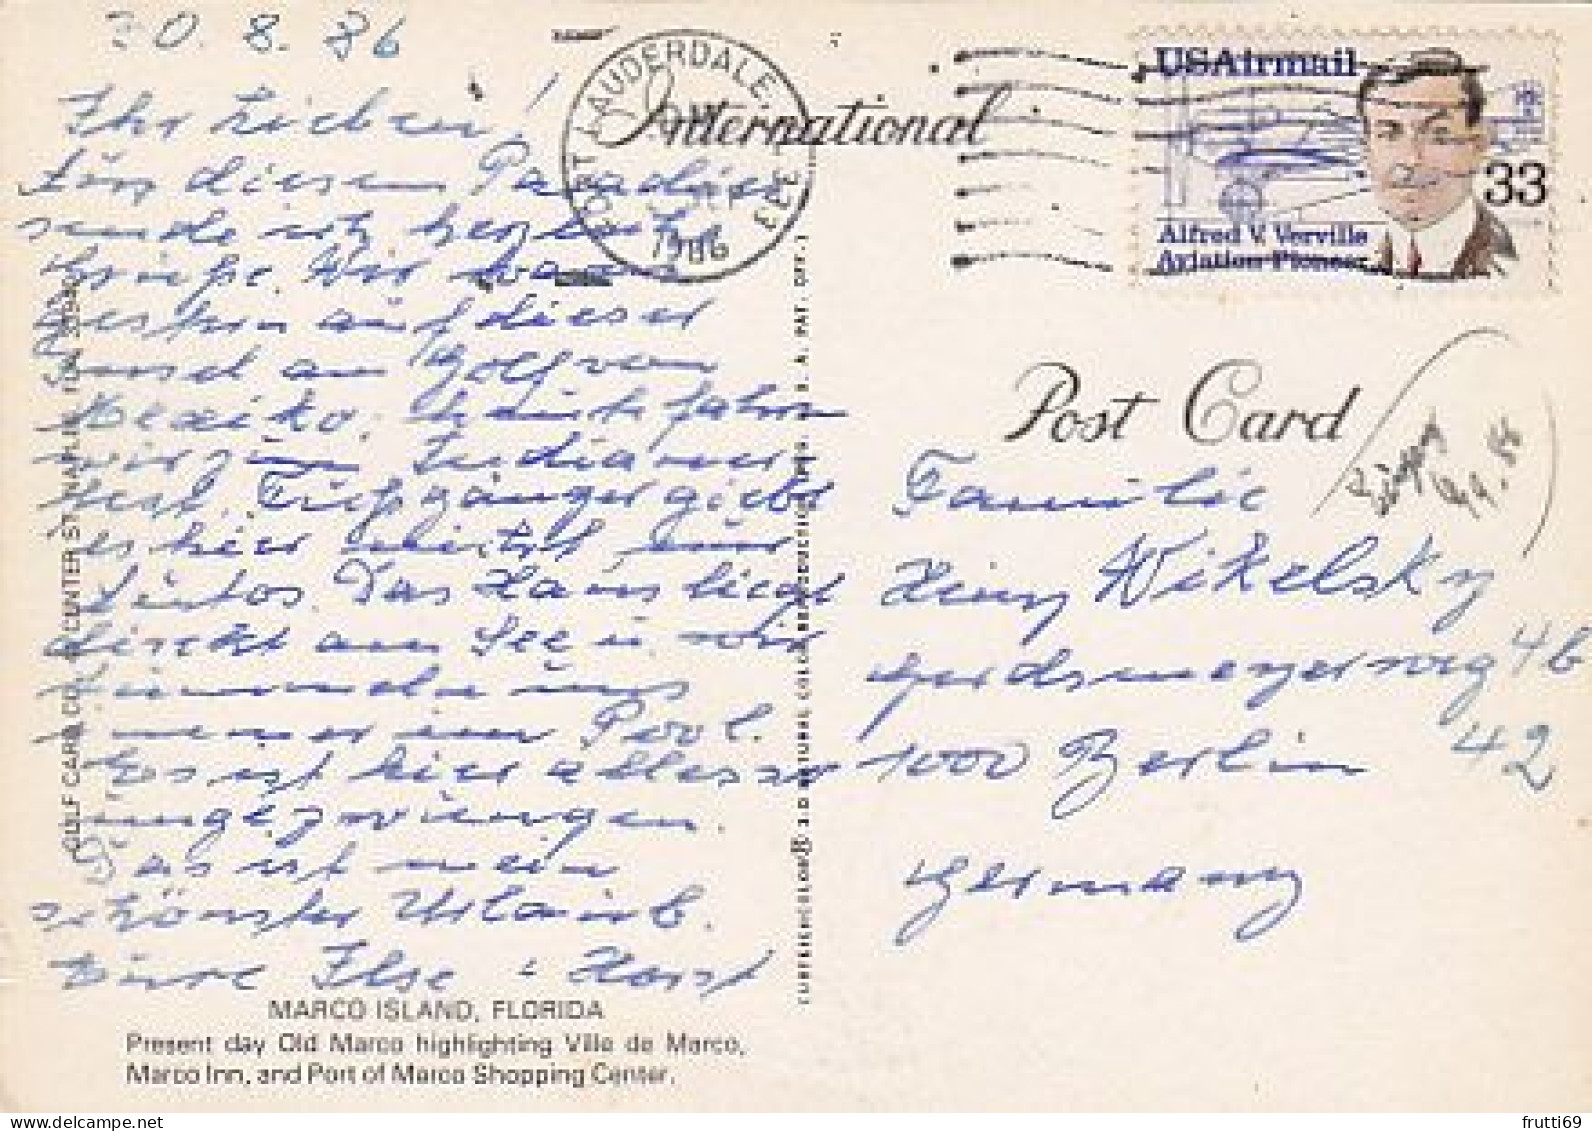 30. 8. 86
Ihr Lieben!
Aus diesem Paradies
sende ich herzlich
Grüße. Wir waren
gestern auf dieser
Insel am Golf von
Mexiko, heute fahren
wir zum Indianer
Fußgänger giebt
es hier nicht nur
Autos. Das Haus liegt
direkt am See u. wir
tummeln uns
immer im Pool.
Es ist hier alles so
ungezwungen.
Das ist mein
schönster Urlaub.
Eure Ilse + Horst
MARCO ISLAND, FLORIDA
Present day Old Marco highlighting Ville de Marco,
Marco Inn, and Port of Marco Shopping Center.
GULF CARD CO., CENTER ST. NAPLES, FLA.
CURTEICHCOLOR® 3-D NATURAL COLOR REPRODUCTION (REG. U.S.A. PAT. OFF.)
FORT LAUDERDALE, FL 333
PM
1986
International
USAirmail
33
Alfred V. Verville
Aviation Pioneer
Post Card
Familie
Heinz Wikelsky
Gerdsmeyerweg 4b
1000 Berlin 42
Germany
frutti69